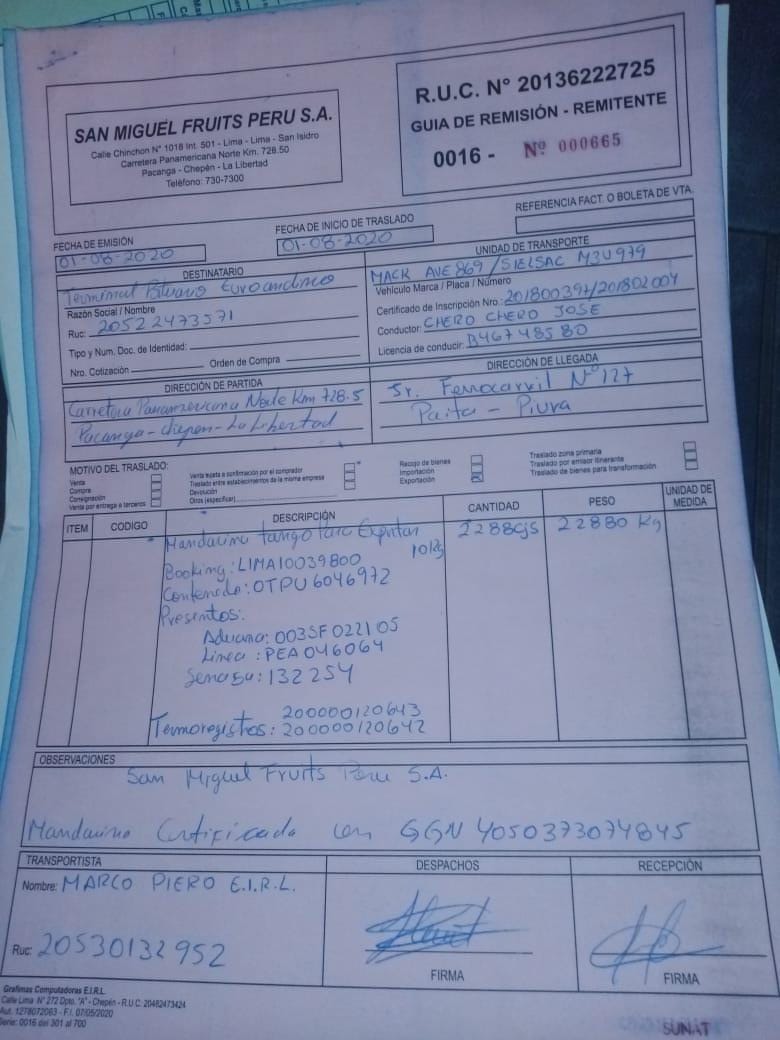 SAN MIGUEL FRUITS PERU S.A.
Calle Chinchon N° 1018 Int. 501 - Lima - Lima - San Isidro
Carretera Panamericana Norte Km. 728.50
Pacanga - Chepén - La Libertad
Teléfono: 730-7300
R.U.C. N° 20136222725
GUIA DE REMISIÓN - REMITENTE
0016 - Nº 000665
FECHA DE EMISIÓN
01-08-2020
FECHA DE INICIO DE TRASLADO
01-08-2020
REFERENCIA FACT. O BOLETA DE VTA.
DESTINATARIO
Terminal Portuario Euroandino
Razón Social / Nombre
Ruc: 20522473571
Tipo y Num. Doc. de Identidad:
Nro. Cotización Orden de Compra
UNIDAD DE TRANSPORTE
MACK AVE 869 / SIELSAC M3U979
Vehículo Marca / Placa / Número
Certificado de Inscripción Nro.: 201800397/201802004
Conductor: CHERO CHERO JOSE
Licencia de conducir: B46748580
DIRECCIÓN DE PARTIDA
Carretera Panamericana Norte Km 728.5
Pacanga - chepen - La Libertad
DIRECCIÓN DE LLEGADA
Jr. Ferrocarril N° 127
Paita - Piura
MOTIVO DEL TRASLADO:
Venta
Compra
Consignación
Venta por entrega a terceros
Venta sujeta a confirmación por el comprador
Traslado entre establecimientos de la misma empresa
Devolución
Otros (especificar)
Recojo de bienes
Importación
Exportación
Traslado zona primaria
Traslado por emisor itinerante
Traslado de bienes para transformación
ITEM CODIGO DESCRIPCIÓN CANTIDAD PESO UNIDAD DE MEDIDA
Mandarina tango Para Exportar 2288cjs 22880 Kg
10Kg
Booking: LIMA10039800
Contenedo: OTPU6046972
Presintos:
Aduana: 003SF022105
Linea: PEA046064
Senasa: 132254
200000120643
Termoregistos: 200000120642
OBSERVACIONES
San Miguel Fruits Peru S.A.
Mandarina Certificada con GGN 4050373074845
TRANSPORTISTA
Nombre: MARCO PIERO E.I.R.L.
Ruc: 20530132952
DESPACHOS
FIRMA
RECEPCIÓN
FIRMA
Grafimas Computadoras E.I.R.L.
Calle Lima N° 272 Dpto. "A" - Chepén - R.U.C. 20482473424
Aut. 1278072063 - F.I. 07/05/2020
Serie: 0016 del 301 al 700
SUNAT